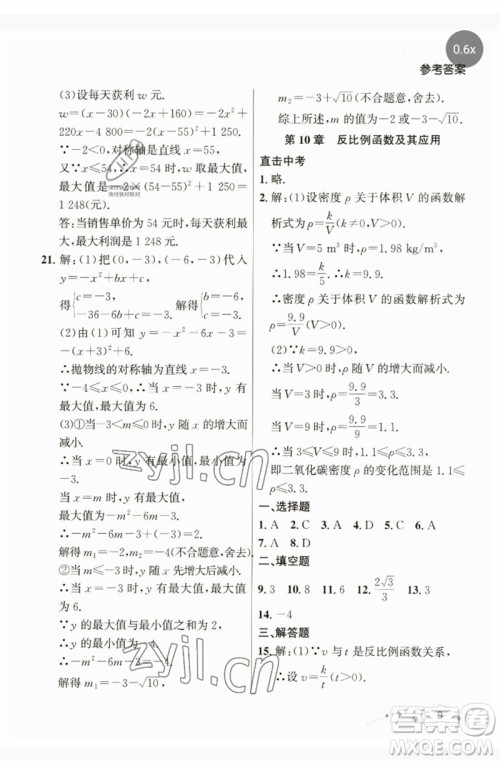 0.6x
参考答案
(3)设每天获利 w 元.
w=(x-30)(-2x+160)=-2x²+
220x-4800=-2(x-55)²+1250.
∵-2<0,对称轴为直线 x=55,
又∵x≤54,∴当 x=54 时,w 取最大
值,最大值为-2×(54-55)²+1250=
1 248(元).
答:当销售单价为 54 元时,每天获利最
大,最大利润是 1 248 元.
21. 解:(1)把(0,-3),(-6,-3)代入
y=-x²+bx+c,
得{c=-3,
-36-6b+c=-3,
解得{b=-6,
c=-3.
(2)由(1)可知 y=-x²-6x-3=
-(x+3)²+6.
∴抛物线的对称轴为直线 x=-3,
又∵-4≤x≤0,∴当 x=-3 时,y 有最
大值,最大值为 6.
(3)①当-3<m≤0 时,y 随 x 的增大而
减小.
∴当 x=0 时,y 有最小值,最小值为-3,
当 x=m 时,y 有最大值,最大值为
-m²-6m-3.
∴-m²-6m-3+(-3)=2.
解得 m₁=-2,m₂=-4(不合题意,舍去).
②当 m≤-3 时,随着 x 的增大,y 先增
大到最大值 6,然后开始减小.
∵y 的最大值与最小值之和为 2,
∴y 的最小值为-4.
∴-m²-6m-3=-4.
解得 m₁=-3-√10,
m₂=-3+√10(不合题意,舍去).
综上所述,m 的值为-2或-3-√10.
第 10 章 反比例函数及其应用
直击中考
1. 略.
2. 解:(1)设密度 ρ 关于体积 V 的函数解
析式为 ρ=k/V(k≠0).
∵当 V=5 m³ 时,ρ=1.98 kg/m³,
∴1.98=k/5,∴k=9.9.
∴密度 ρ 关于体积 V 的函数解析式是
ρ=9.9/V(V>0).
(2)∵k=9.9>0,
∴当 V>0 时,ρ 随 V 的增大而减小.
当 V=3 时,ρ=9.9/3=3.3,
当 V=9 时,ρ=9.9/9=1.1,
∴当 3≤V≤9 时,1.1≤ρ≤3.3,
即二氧化碳密度 ρ 的变化范围是 1.1≤
ρ≤3.3.
一、选择题
1. A 2. C 3. A 4. A 5. D 6. C
7. A 8. D
二、填空题
9. 3 10. 8 11. 6 12. 2√3/3 13. 3
14. -4
三、解答题
15. 解:(1)∵v 与 t 是反比例函数关系,
∴设 v=k/t(t>0).
zyjl.cn
zyjl.cn
答案圈
MXQE.COM